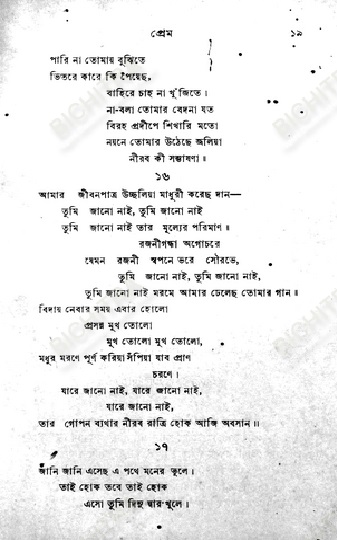 প্রেম ১৯
পারি না তোমায় বুঝিতে
ভিতরে কারে কি পেয়েছ,
বাহিরে চাহ না খুঁজিতে।
না-বলা তোমার বেদনা যত
বিরহ প্রদীপে শিখারি মতো
নয়নে তোমার উঠেছে জ্বলিয়া
নীরব কী সম্ভাষণা॥
১৬
আমার জীবনপাত্র উচ্ছলিয়া মাধুরী করেছ দান—
তুমি জানো নাই, তুমি জানো নাই
তুমি জানো নাই তার মূল্যের পরিমাণ॥
রজনীগন্ধা অগোচরে
যেমন রজনী স্বপনে ভরে সৌরভে,
তুমি জানো নাই, তুমি জানো নাই,
তুমি জানো নাই মরমে আমার ঢেলেছ তোমার গান॥
বিদায় নেবার সময় এবার হোলো
প্রসন্ন মুখ তোলো
মুখ তোলো মুখ তোলো,
মধুর মরণে পূর্ণ করিয়া সঁপিয়া যাব প্রাণ
চরণে।
যারে জানো নাই, যারে জানো নাই,
যারে জানো নাই,
তার গোপন ব্যথার নীরব রাত্রি হোক আজি অবসান॥
১৭
জানি জানি এসেছ এ পথে মনের ভুলে।
তাই হোক তবে তাই হোক
এসো তুমি দিনু দ্বার খুলে।